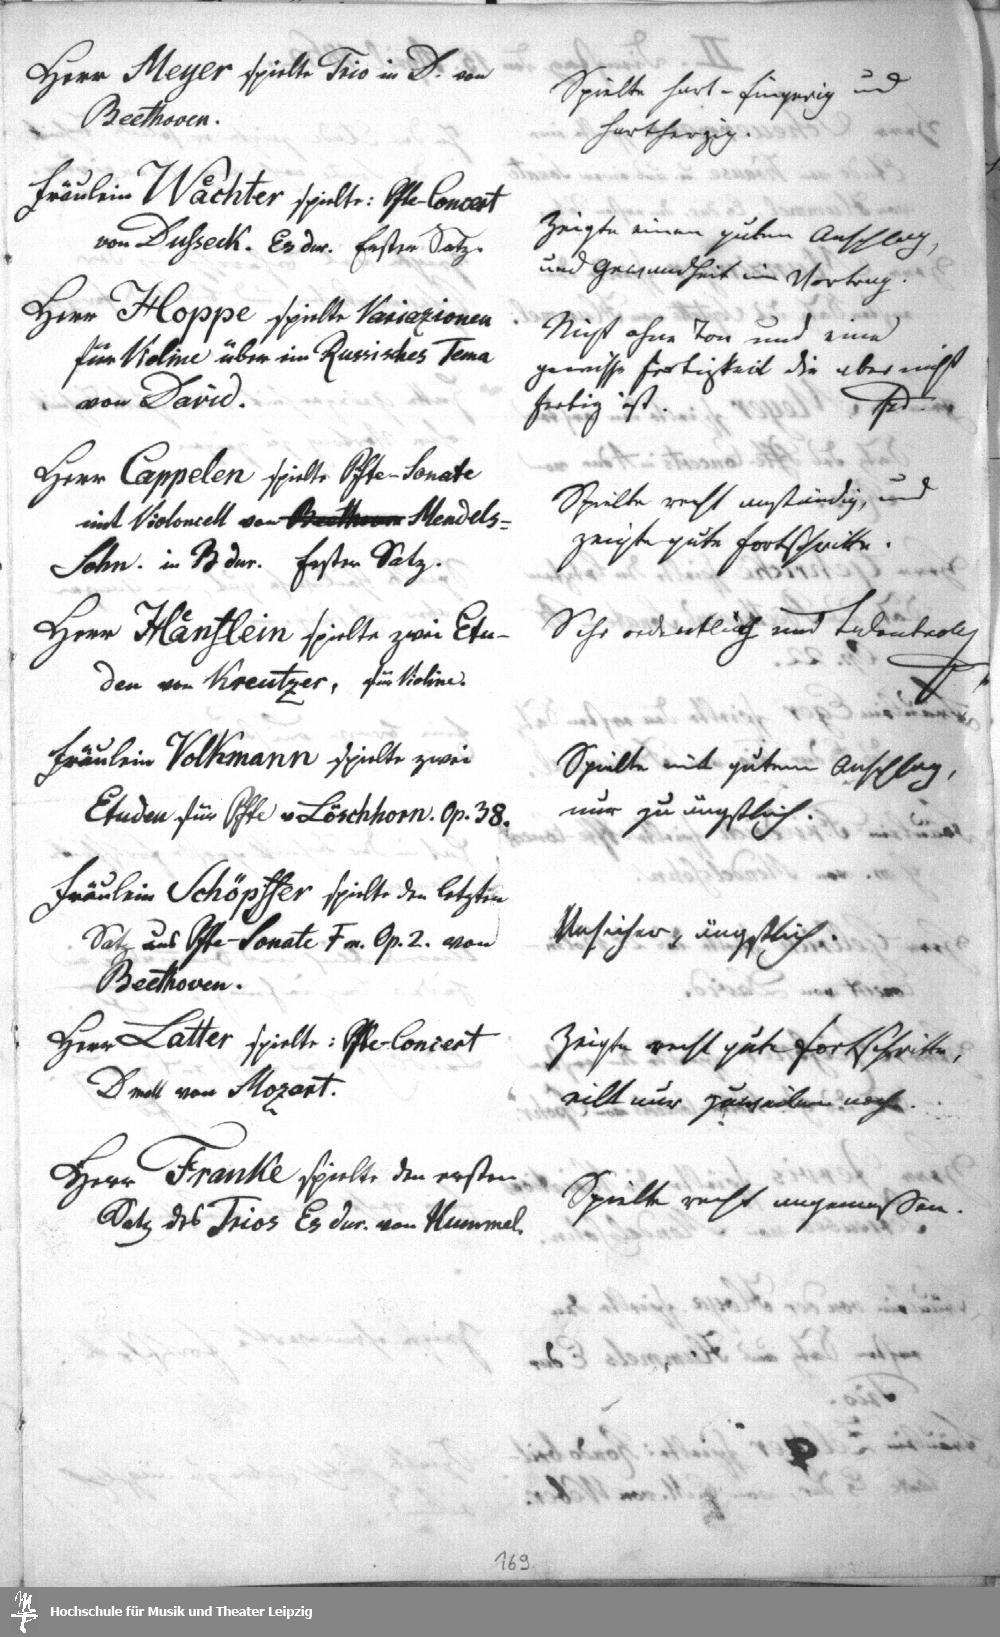 Herr Meyer spielte Trio in D. von
Beethoven.
Spielte hart-fingerig und
hartherzig.
Fräulein Wächter spielte: Pfte-Concert
von Dusseck. Es dur. Erster Satz.
Zeigte einen guten Anschlag,
und Gewandheit im Vortrag.
Herr Hoppe spielte Variazionen
für Violine über ein Russisches Tema
von David.
Nicht ohne Ton und eine
gewisse Fertigkeit die aber nicht
fertig ist.
Herr Cappelen spielte Pfte-Sonate
mit Violoncell von Beethoven Mendels=
Sohn. in B dur. Erster Satz.
Spielte recht anständig, und
zeigte gute Fortschritte.
Herr Hänflein spielte zwei Etu-
den von Kreutzer, für Violine.
Sehr ordentlich und talentvoll
Fräulein Volkmann spielte zwei
Etuden für Pfte v Löschhorn. Op. 38.
Spielte mit gutem Anschlag,
nur zu ängstlich.
Fräulein Schöpffer spielte den letzten
Satz aus Pfte-Sonate Fm. Op. 2. von
Beethoven.
Unsicher, ängstlich.
Herr Latter spielte: Pfte-Concert
D moll von Mozart.
Zeigte recht gute Fortschritte,
eilt nur zuweilen noch.
Herr Franke spielte den ersten
Satz des Trios Es dur. von Hummel.
Spielte recht angemessen.
169
Hochschule für Musik und Theater Leipzig